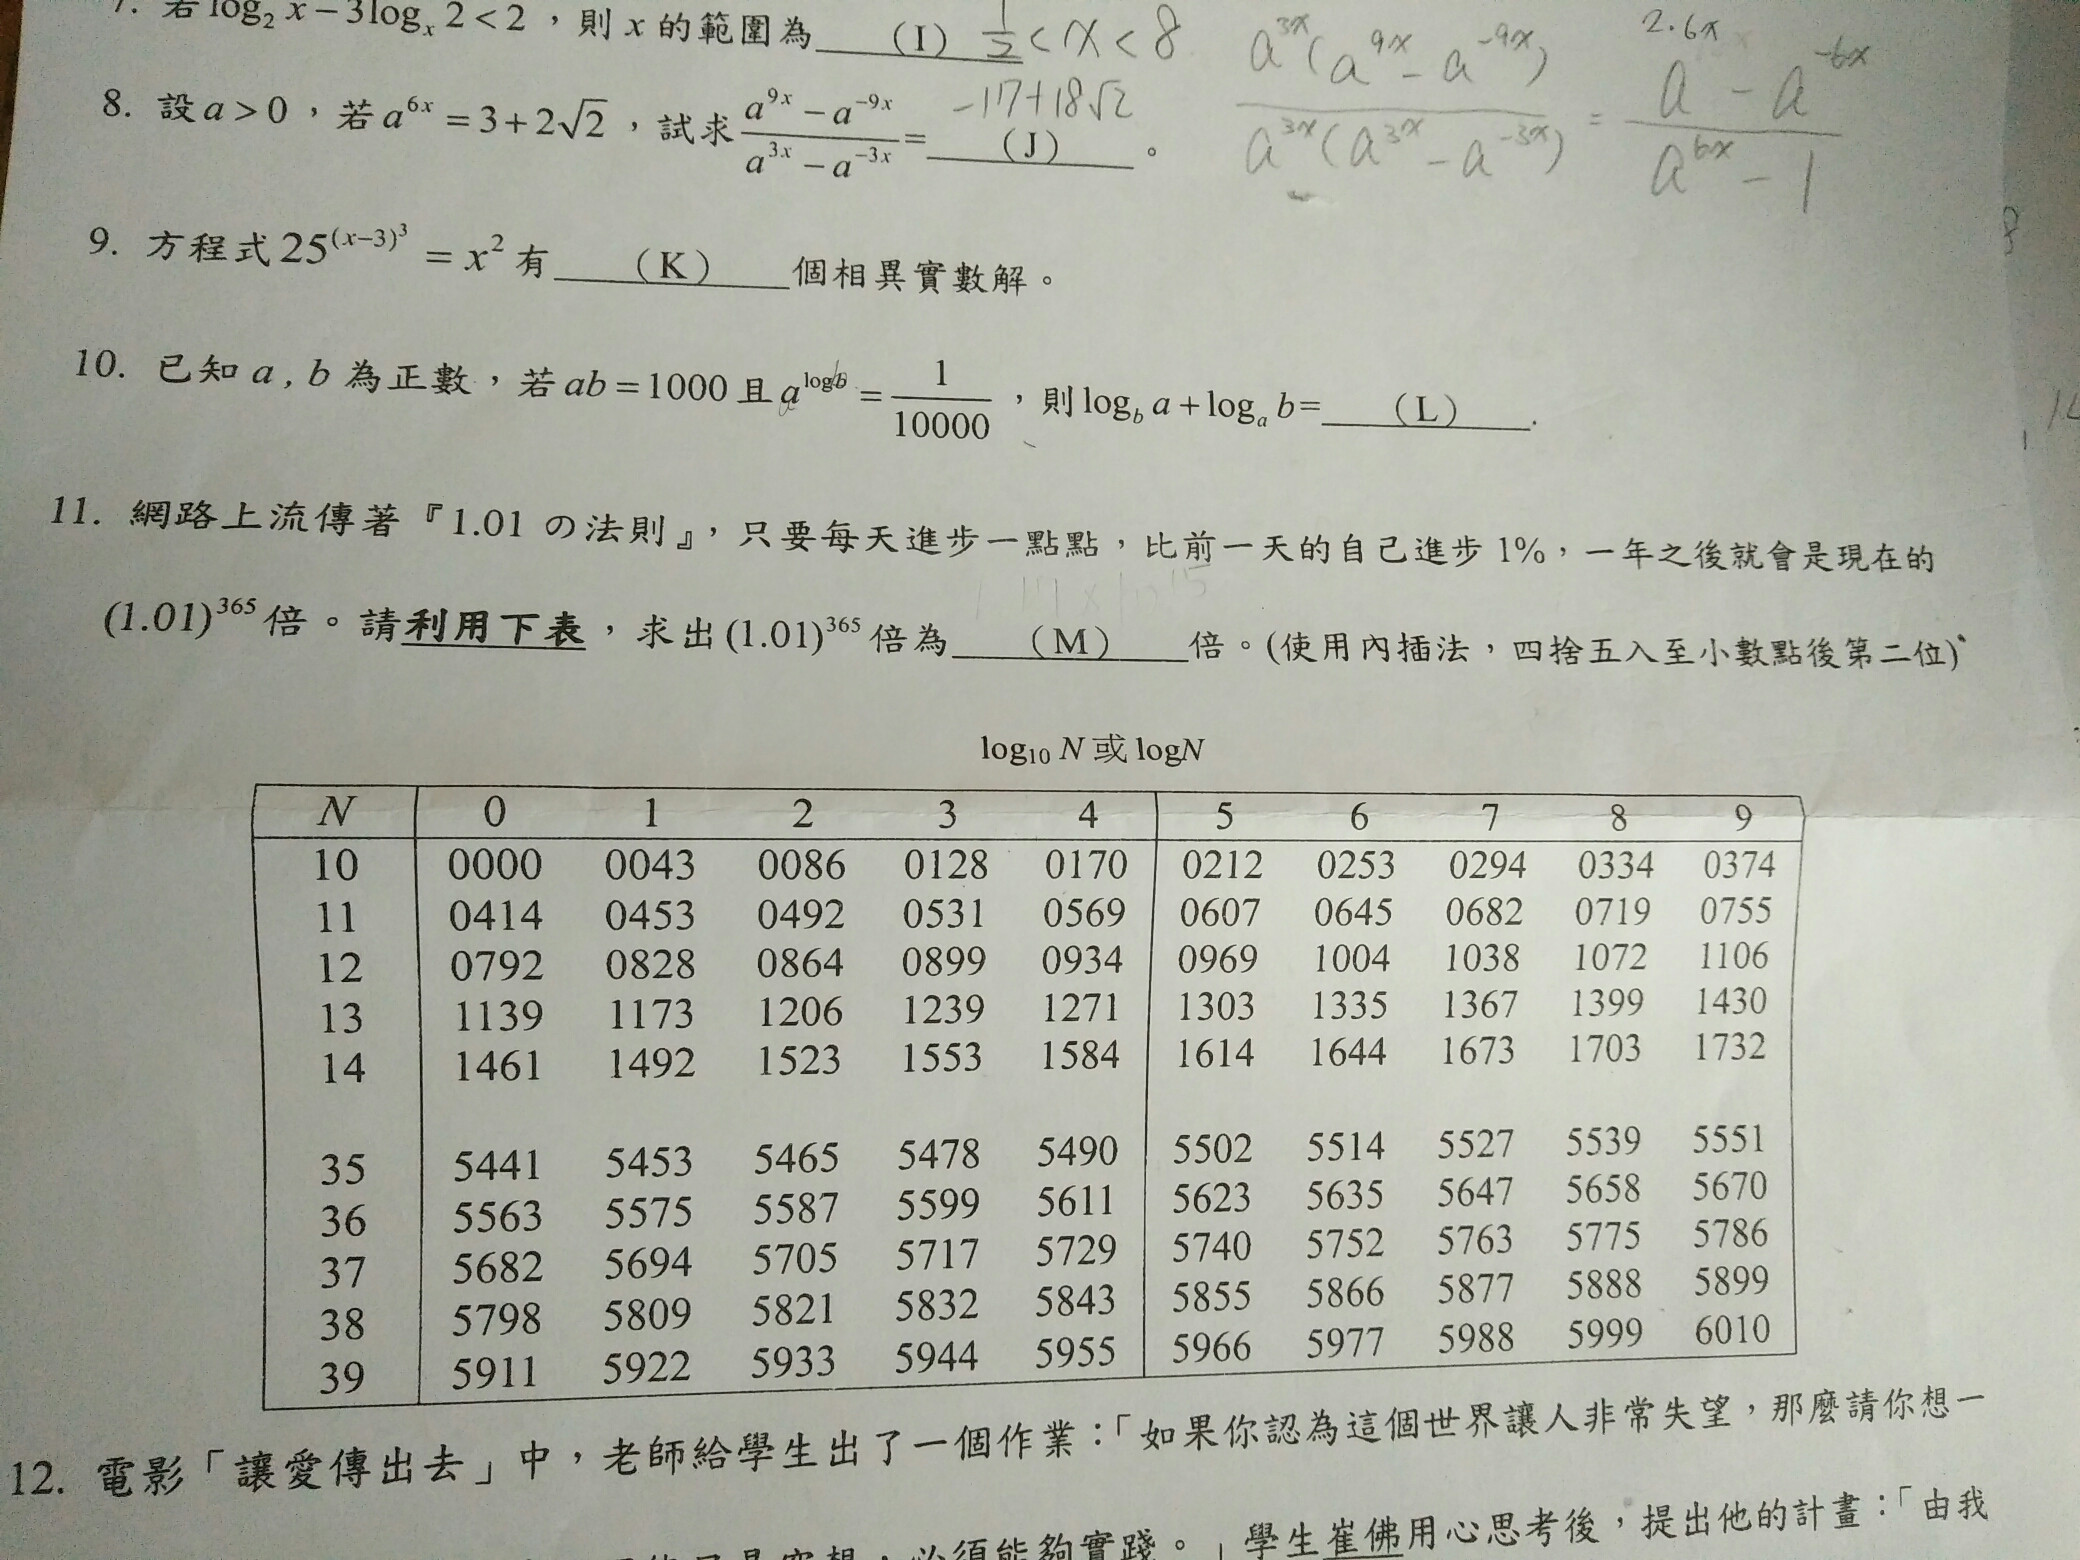 7. 若 log₂ x − 3logₓ 2 < 2，則 x 的範圍為 (I) 1/2 < x < 8
8. 設 a > 0，若 a^{6x} = 3+2√2，試求 (a^{9x} − a^{−9x})/(a^{3x} − a^{−3x}) = (J) 。 -17+18√2
a^{3x}(a^{9x} - a^{-9x}) / a^{3x}(a^{3x} - a^{-3x}) = a^{2·6x} - a^{-6x} / a^{6x} - 1
9. 方程式 25^{(x−3)³} = x² 有 (K) 個相異實數解。
10. 已知 a , b 為正數，若 ab = 1000 且 a^{log b} = 1/10000，則 log_b a + log_a b = (L) .
11. 網路上流傳著『1.01 の法則』，只要每天進步一點點，比前一天的自己進步 1%，一年之後就會是現在的
(1.01)^{365} 倍。請利用下表，求出 (1.01)^{365} 倍為 (M) 倍。(使用內插法，四捨五入至小數點後第二位)
log₁₀ N 或 logN
N 0 1 2 3 4 5 6 7 8 9
10 0000 0043 0086 0128 0170 0212 0253 0294 0334 0374
11 0414 0453 0492 0531 0569 0607 0645 0682 0719 0755
12 0792 0828 0864 0899 0934 0969 1004 1038 1072 1106
13 1139 1173 1206 1239 1271 1303 1335 1367 1399 1430
14 1461 1492 1523 1553 1584 1614 1644 1673 1703 1732
35 5441 5453 5465 5478 5490 5502 5514 5527 5539 5551
36 5563 5575 5587 5599 5611 5623 5635 5647 5658 5670
37 5682 5694 5705 5717 5729 5740 5752 5763 5775 5786
38 5798 5809 5821 5832 5843 5855 5866 5877 5888 5899
39 5911 5922 5933 5944 5955 5966 5977 5988 5999 6010
12. 電影「讓愛傳出去」中，老師給學生出了一個作業：「如果你認為這個世界讓人非常失望，那麼請你想一
必須能夠實踐。」學生崔佛用心思考後，提出他的計畫：「由我